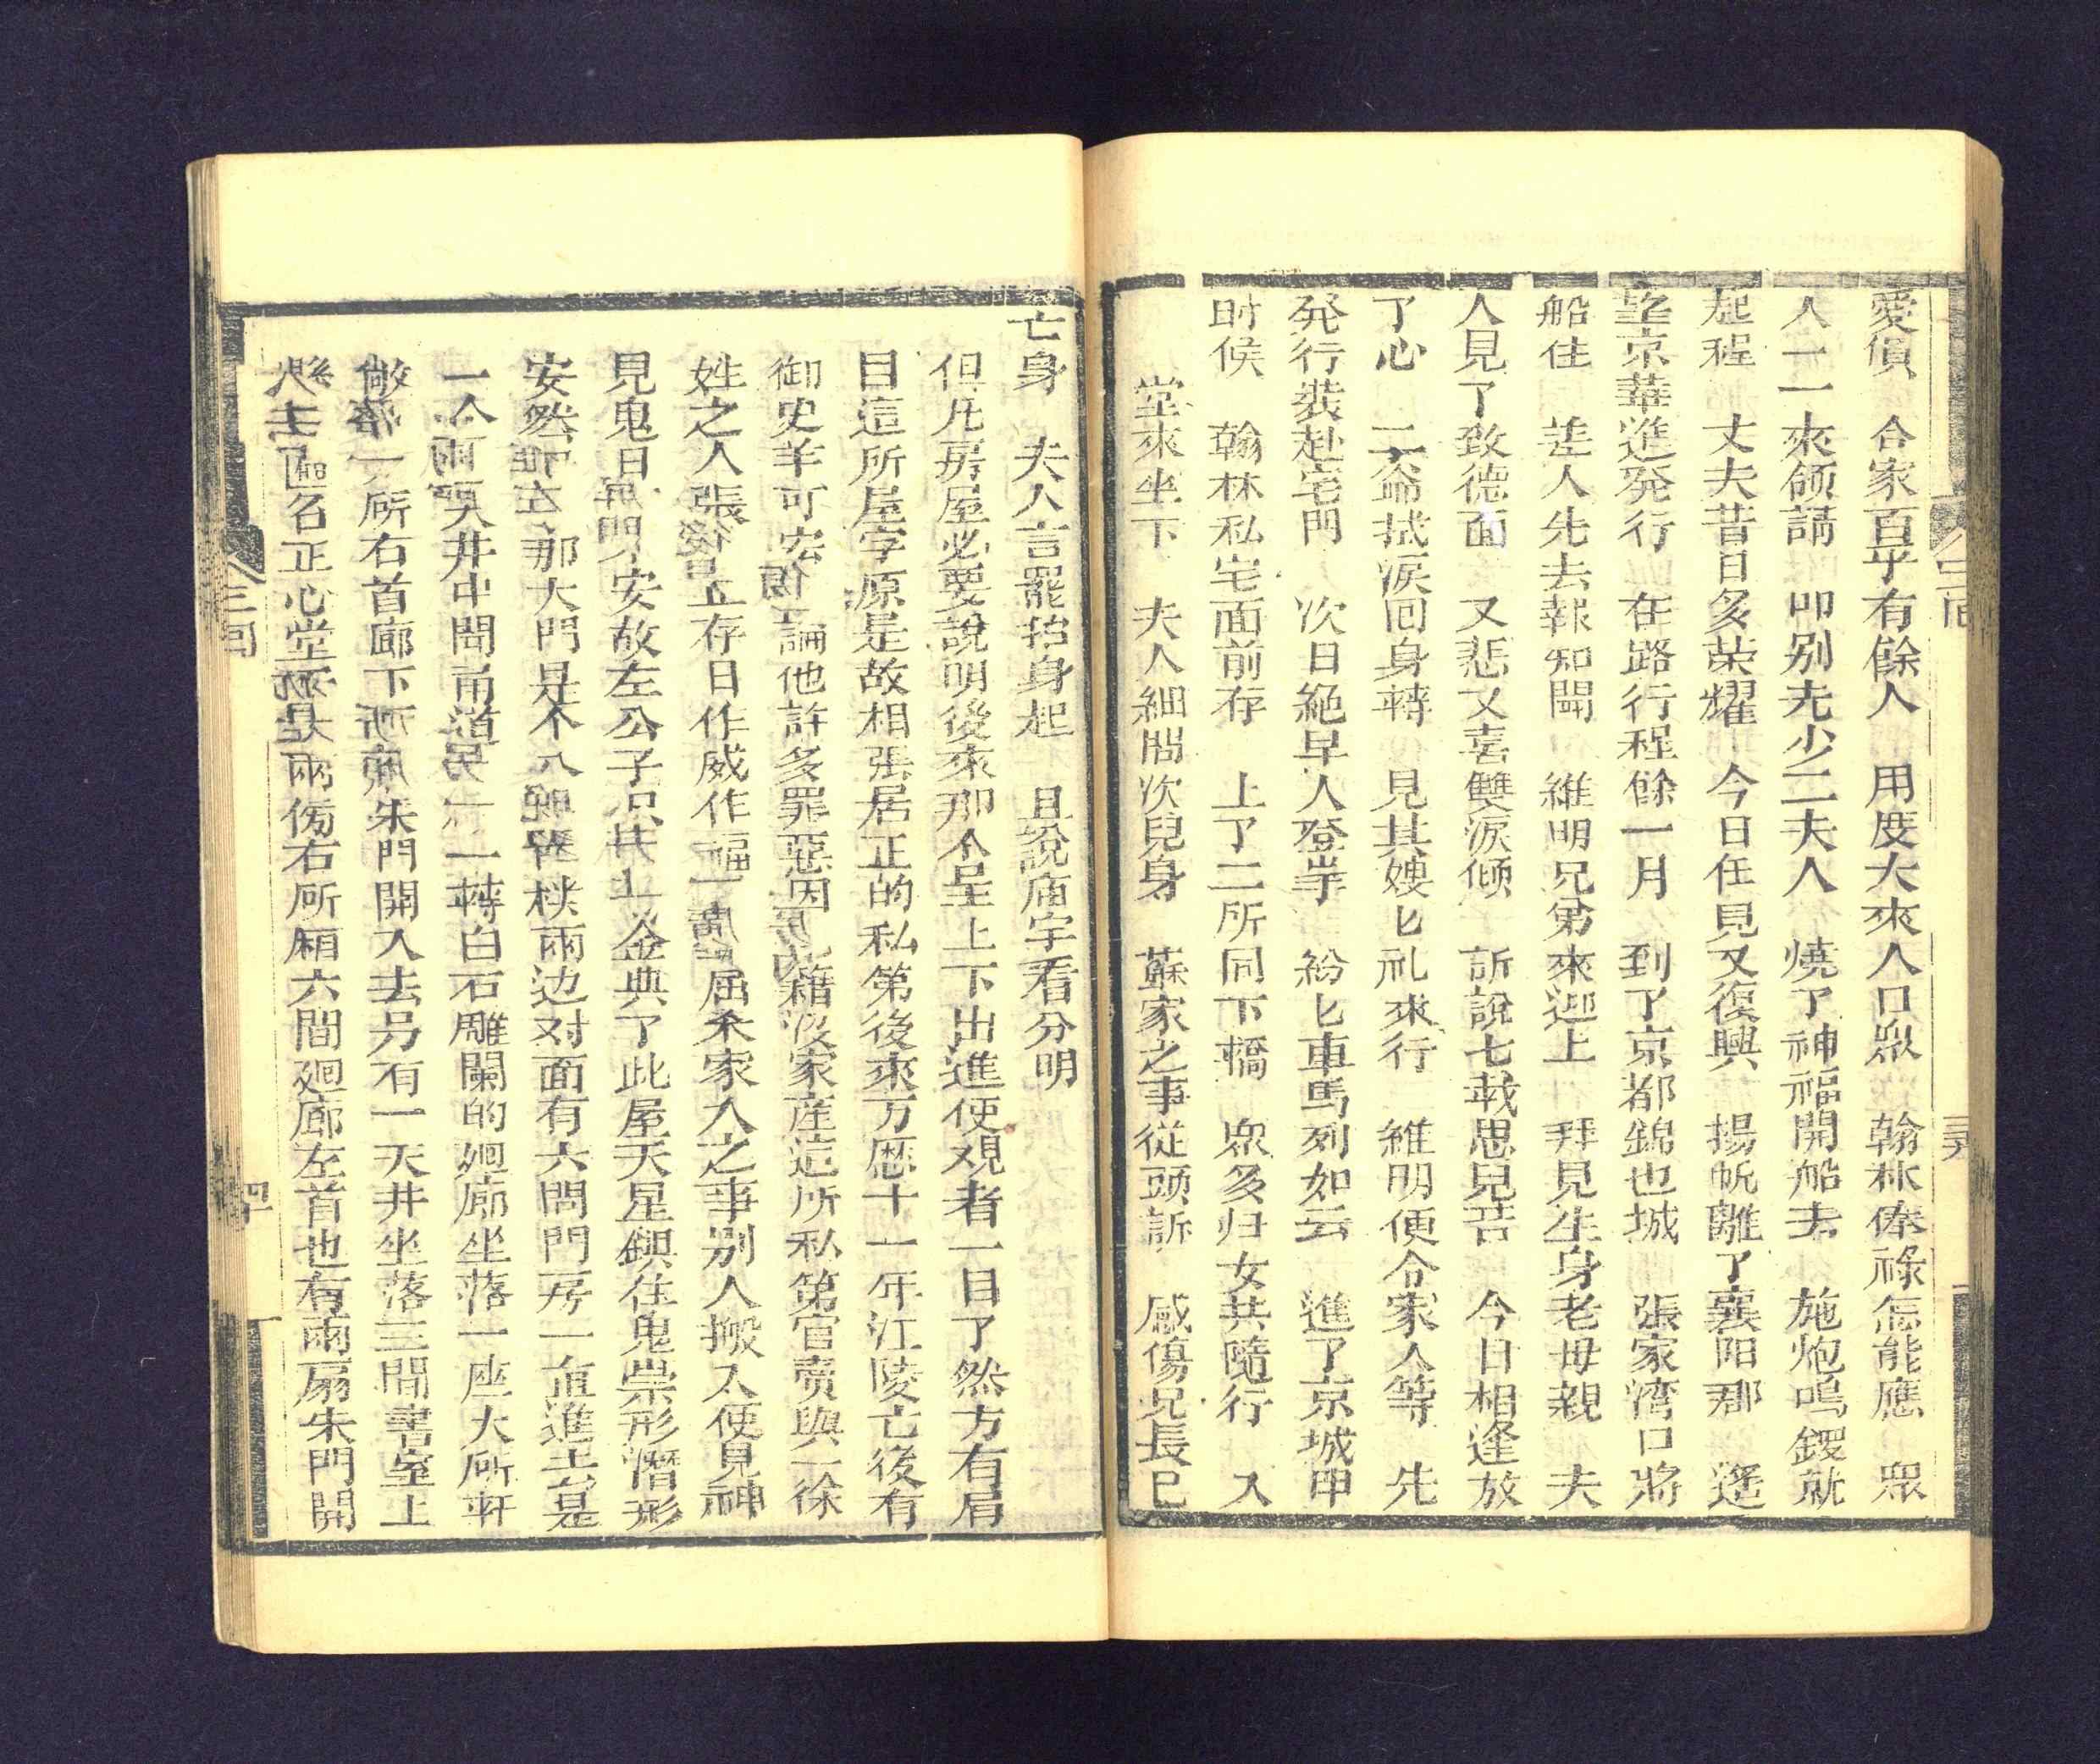 愛惧 合家百乎有餘人 用度大來人口眾 翰林俸祿怎能應 眾
人一一來領請 叩别老少二夫人 燒了神福開船去 施炮鳴鑼就
起程 丈夫昔日多荣耀 今日任見又復興 揚帆離了襄阳郡 遥
望京華進発行 在路行程餘一月 到了京都錦也城 張家湾口將
船住 差人先去報知聞 維明兄弟來迎上 拜見生身老母親 夫
人見了致德面 又悲又喜雙淚倾 訴說七載思兒苦 今日相逢放
了心 二爺拭淚回身轉 見其嫂匕礼來行 維明便令家人等 先
発行裝赴宅門 次日絕早人登岸 紛匕車馬列如云 進了京城甲
时候 翰林私宅面前存 上了二所同下轎 眾多归女共隨行 入
堂來坐下 夫人細問次兒身 蘇家之事從頭訴 感傷兄長已
亡身 夫人言罷抬身起 且說庙宇看分明
但凡房屋必要說明後來那个呈上下出進便观者一目了然方有眉
目這所屋字原是故相張居正的私第後來万歷十一年江陵亡後有
御史羊可宏論他許多罪惡因籍没家産這所私第官賣與一徐
姓之人張存日作威作福屈来家人之事别人搬入便見神
見鬼日安故左公子只金典了此屋天星鎮住鬼祟形潛形
安然那大門是个八樣兩边对面有六間門房一直進去是
一个兩天井中間甬道一轉白石雕闌的廻廊坐落一座大所軒
敞一所右首廊下朱門開入去另有一天井坐落三間書室上
懸匾名正心堂兩傍右所廂六間廻廊左首也有兩扇朱門開
三囘